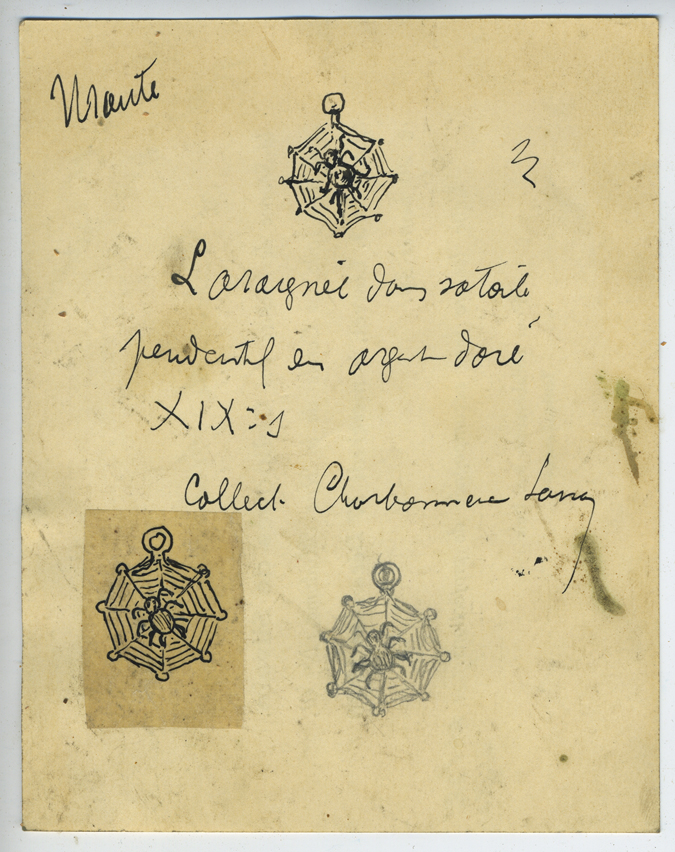 L'araignée dans sa toile
pendentif en argent doré
XIXe s
Collect. Charbonneau Lassay